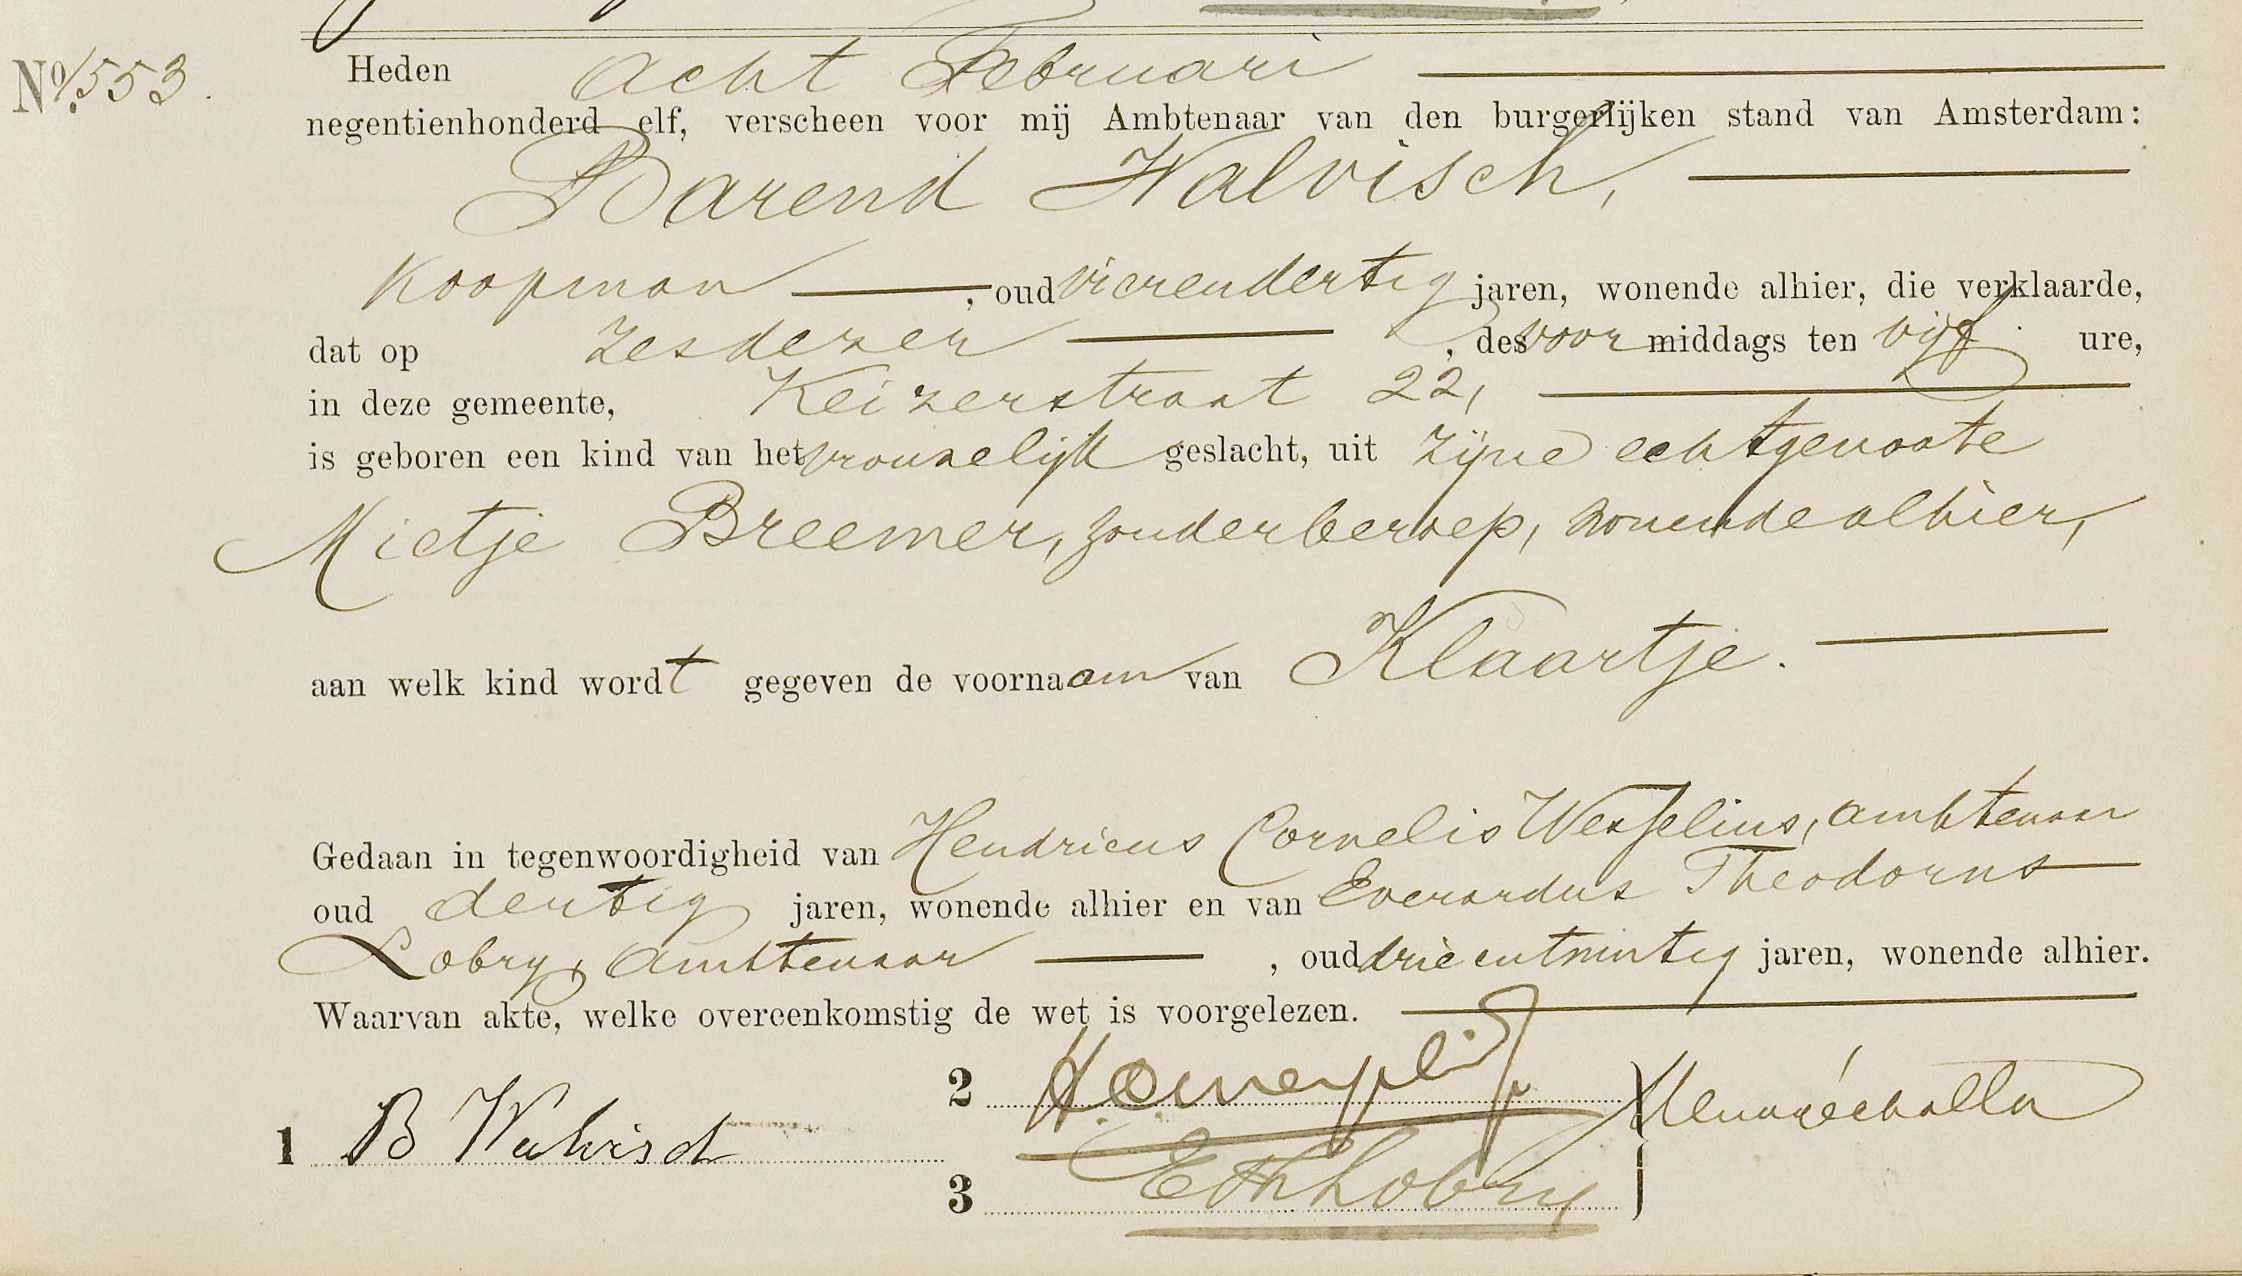 No. 1553.
Heden acht Februari
negentienhonderd elf, verscheen voor mij Ambtenaar van den burgerlijken stand van Amsterdam:
Barend Walvisch,
koopman, oud vierendertig jaren, wonende alhier, die verklaarde,
dat op zesdezer, des voormiddags ten vijf ure,
in deze gemeente, Keizerstraat 22,
is geboren een kind van het vrouwelijk geslacht, uit zijne echtgenoote
Mietje Breemer, zonder beroep, wonende alhier,
aan welk kind wordt gegeven de voornaam van Klaartje.
Gedaan in tegenwoordigheid van Hendricus Cornelis Wesselius, ambtenaar
oud dertig jaren, wonende alhier en van Everardus Theodorus
Lobry, ambtenaar, oud drieentwintig jaren, wonende alhier.
Waarvan akte, welke overeenkomstig de wet is voorgelezen.
1 B Walvisch
2
3 EThLobry